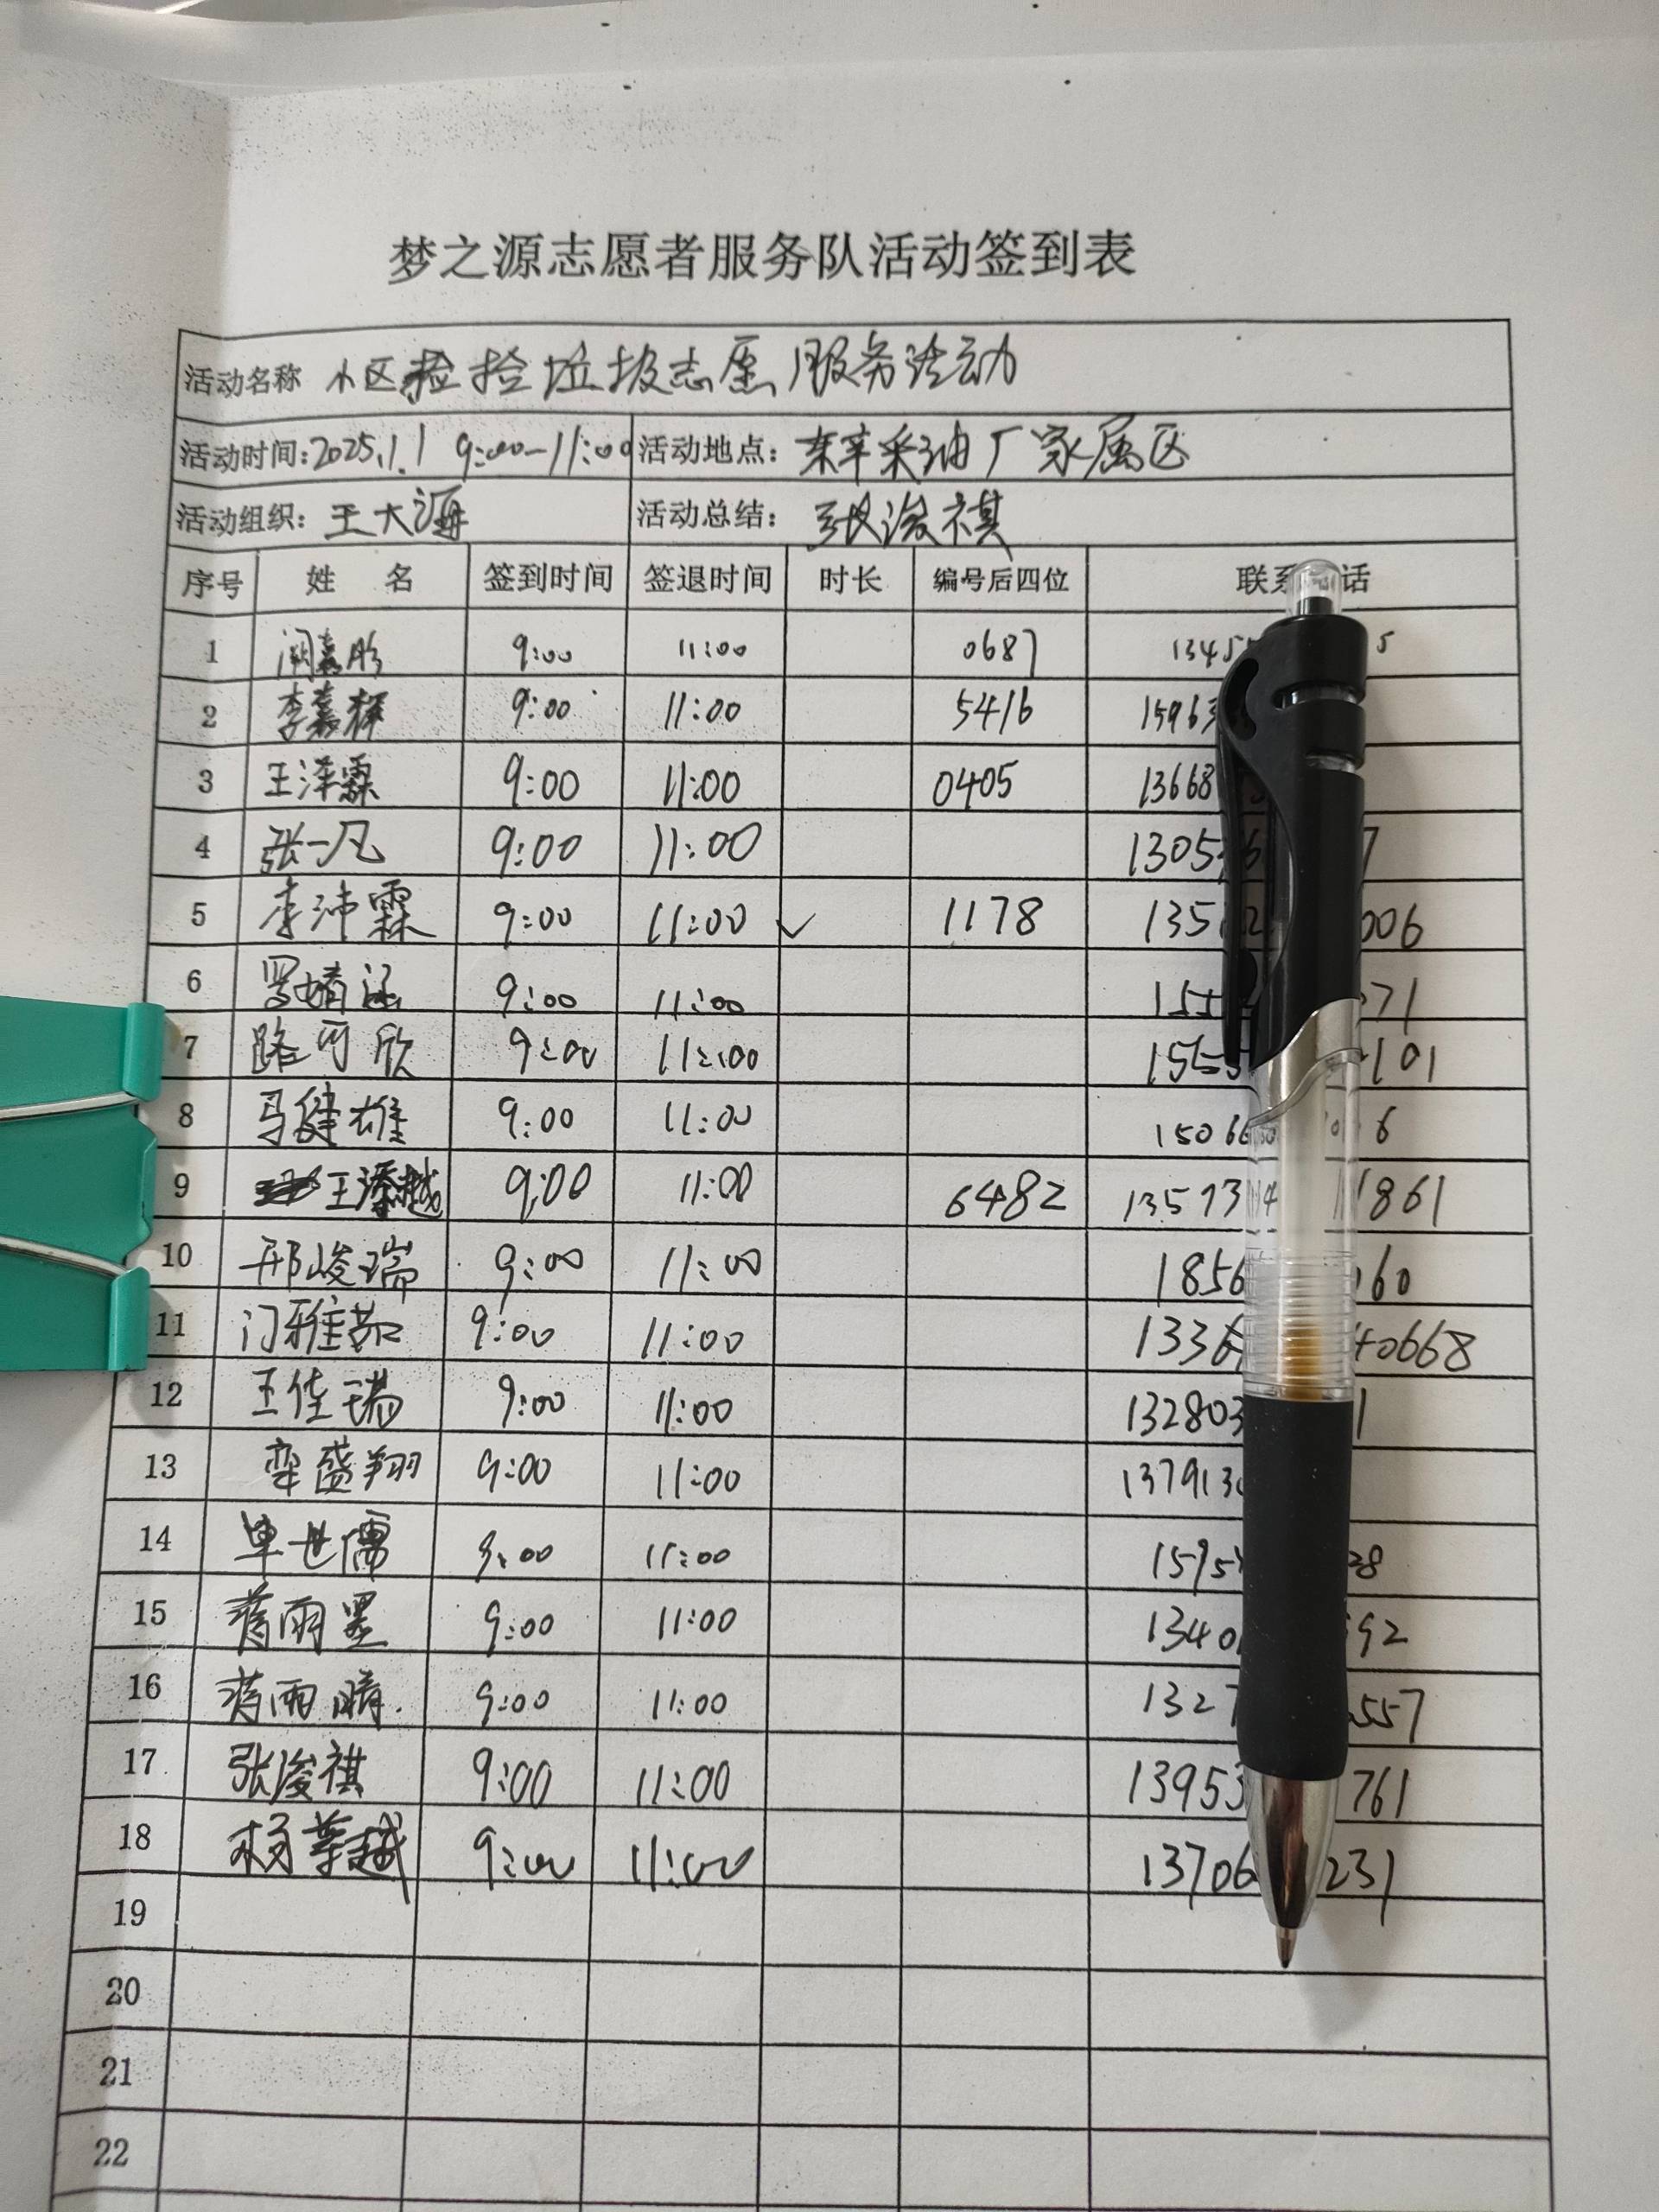 梦之源志愿者服务队活动签到表
活动名称 小区捡拾垃圾志愿服务活动
活动时间:2025.1.1 9:00-11:00 活动地点: 东辛采油厂家属区
活动组织: 王大海 活动总结: 张浚祺
序号 姓 名 签到时间 签退时间 时长 编号后四位 联系 话
1 9:00 11:00 0687 1345 5
2 李嘉辉 9:00 11:00 5416 15963
3 王泽霖 9:00 11:00 0405 13668
4 张一凡 9:00 11:00 1305 7
5 李沛霖 9:00 11:00 ✓ 1178 135 006
6 罗婧涵 9:00 11:00 155 71
7 路可欣 9:00 11:00 1565 101
8 马健雄 9:00 11:00 15066 6
9 王添越 9:00 11:00 6482 13573 1861
10 邢峻瑞 9:00 11:00 1856 060
11 门雅茹 9:00 11:00 1336 40668
12 王佳瑞 9:00 11:00 132803 1
13 栾盛翔 9:00 11:00 137913
14 单世儒 9:00 11:00 1595 28
15 蒋雨墨 9:00 11:00 1340 92
16 蒋雨晴. 9:00 11:00 1327 557
17 张浚祺 9:00 11:00 13953 761
18 杨莘越 9:00 11:00 13706 231
19
20
21
22